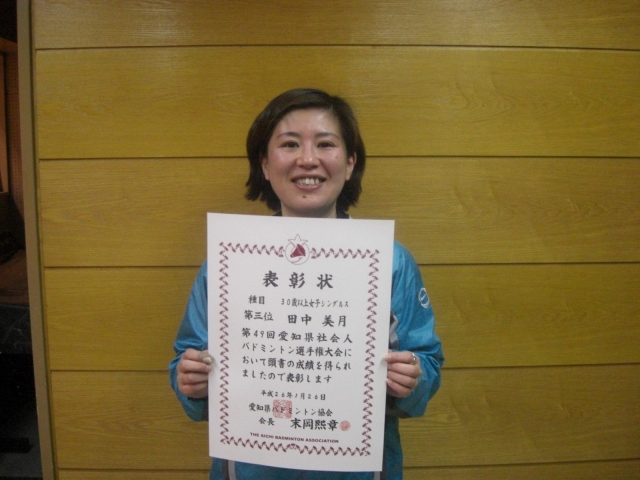 表彰状
種目 30歳以上女子シングルス
第三位 田中 美月
第49回愛知県社会人
バドミントン選手権大会に
おいて頭書の成績を得られ
ましたので表彰します
平成26年1月26日
愛知県バドミントン協会
会長 末岡熙章
THE AICHI BADMINTON ASSOCIATION